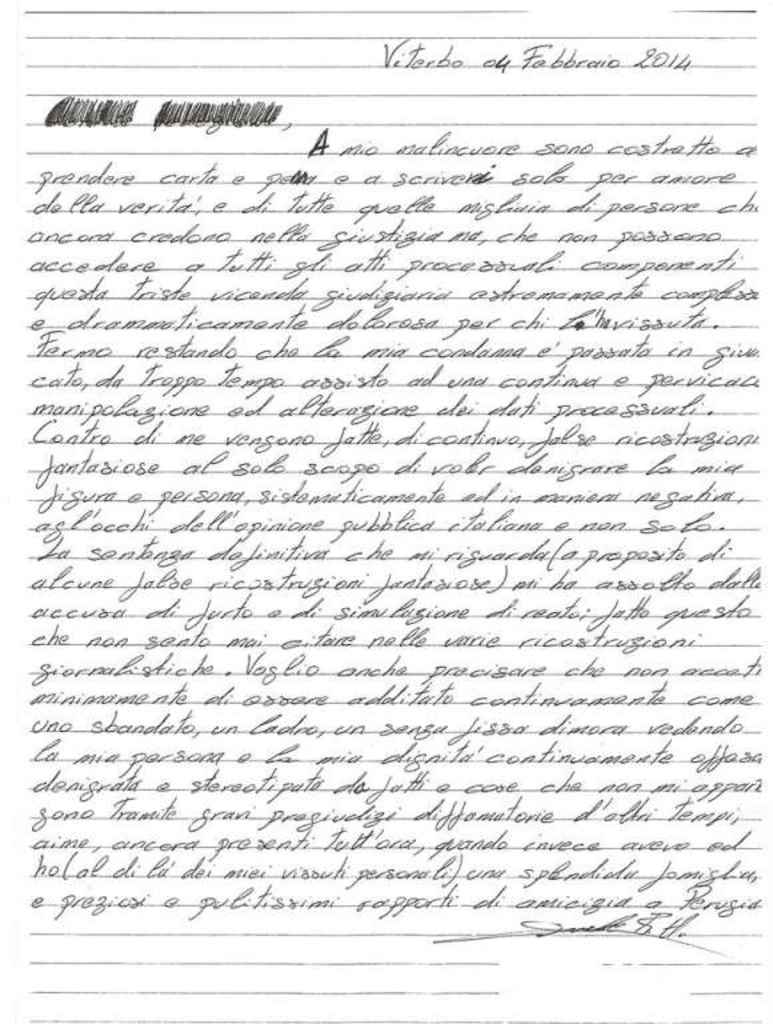 Viterbo 04 Febbraio 2014
,
A mio malincuore sono costretto a
prendere carta e penna e a scrivervi solo per amore
della verità, e di tutte quelle migliaia di persone ch
ancora credono nella giustizia ma, che non possono
accedere a tutti gli atti processuali componenti
questa triste vicenda giudiziaria estremamente compless
e drammaticamente dolorosa per chi l'ha vissuta.
Fermo restando che la mia condanna e' passata in giu
cato, da troppo tempo assisto ad una continua e pervicac
manipolazione ed alterazione dei dati processuali.
Contro di me vengono fatte, di continuo, false ricostruzioni
fantasiose al solo scopo di voler denigrare la mia
figura e persona, sistematicamente ed in maniera negativa,
agl'occhi dell'opinione pubblica italiana e non solo.
La sentenza definitiva che mi riguarda (a proposito di
alcune false ricostruzioni fantasiose) mi ha assolto dalle
accusa di furto e di simulazione di reato; fatto questo
che non sento mai citare nelle varie ricostruzioni
giornalistiche. Voglio anche precisare che non accett
minimamente di essere additato continuamente come
uno sbandato, un ladro, un senza fissa dimora vedendo
la mia persona e la mia dignità continuamente offesa
denigrata e stereotipata da fatti e cose che non mi appart
gono tramite gravi pregiudizi diffamatorie d'altri tempi,
aime, ancora presenti tutt'ora, quando invece avevo ed
ho (al di là dei miei vissuti personali) una splendida famiglia,
e preziosi e pulitissimi rapporti di amicizia a Perugia